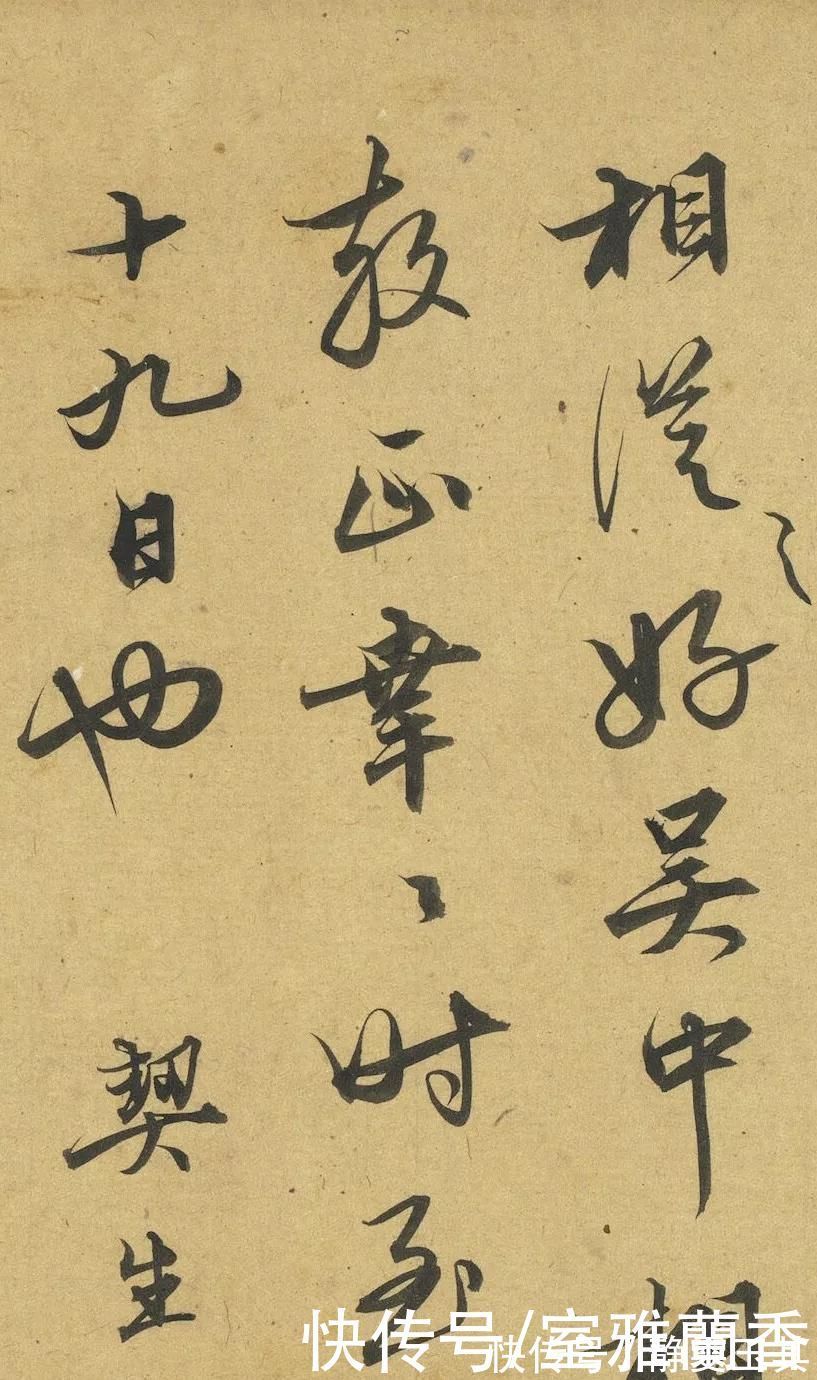 相從之好吳中相
教正幸〻時至
十九日也 契生
快传号/室雅蘭香